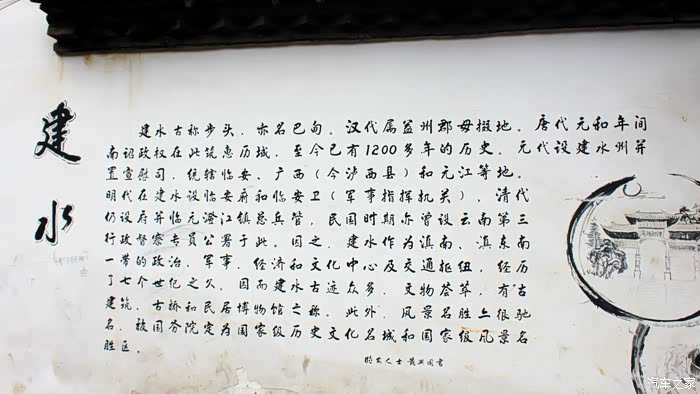 建水
建水古称步头，亦名巴甸。汉代属益州郡毋掇地。唐代元和年间
南诏政权在此筑惠历城，至今已有1200多年的历史。元代设建水州并
置宣慰司，统辖临安、广西（今泸西县）和元江等地。
明代在建水设临安府和临安卫（军事指挥机关），清代
仍设府并临元澄江镇总兵管，民国时期亦曾设云南第三
行政督察专员公署于此。因之，建水作为滇南、滇东南
一带的政治、军事，经济和文化中心及交通抠纽，经历
了七个世纪之久，因而建水古迹众多，文物荟萃，有"古
建筑，古桥和民居博物馆之称。此外，风景名胜亦很驰
名，被国务院定为国家级历史文化名城和国家级风景名
胜区。
人士
书
汽车之家